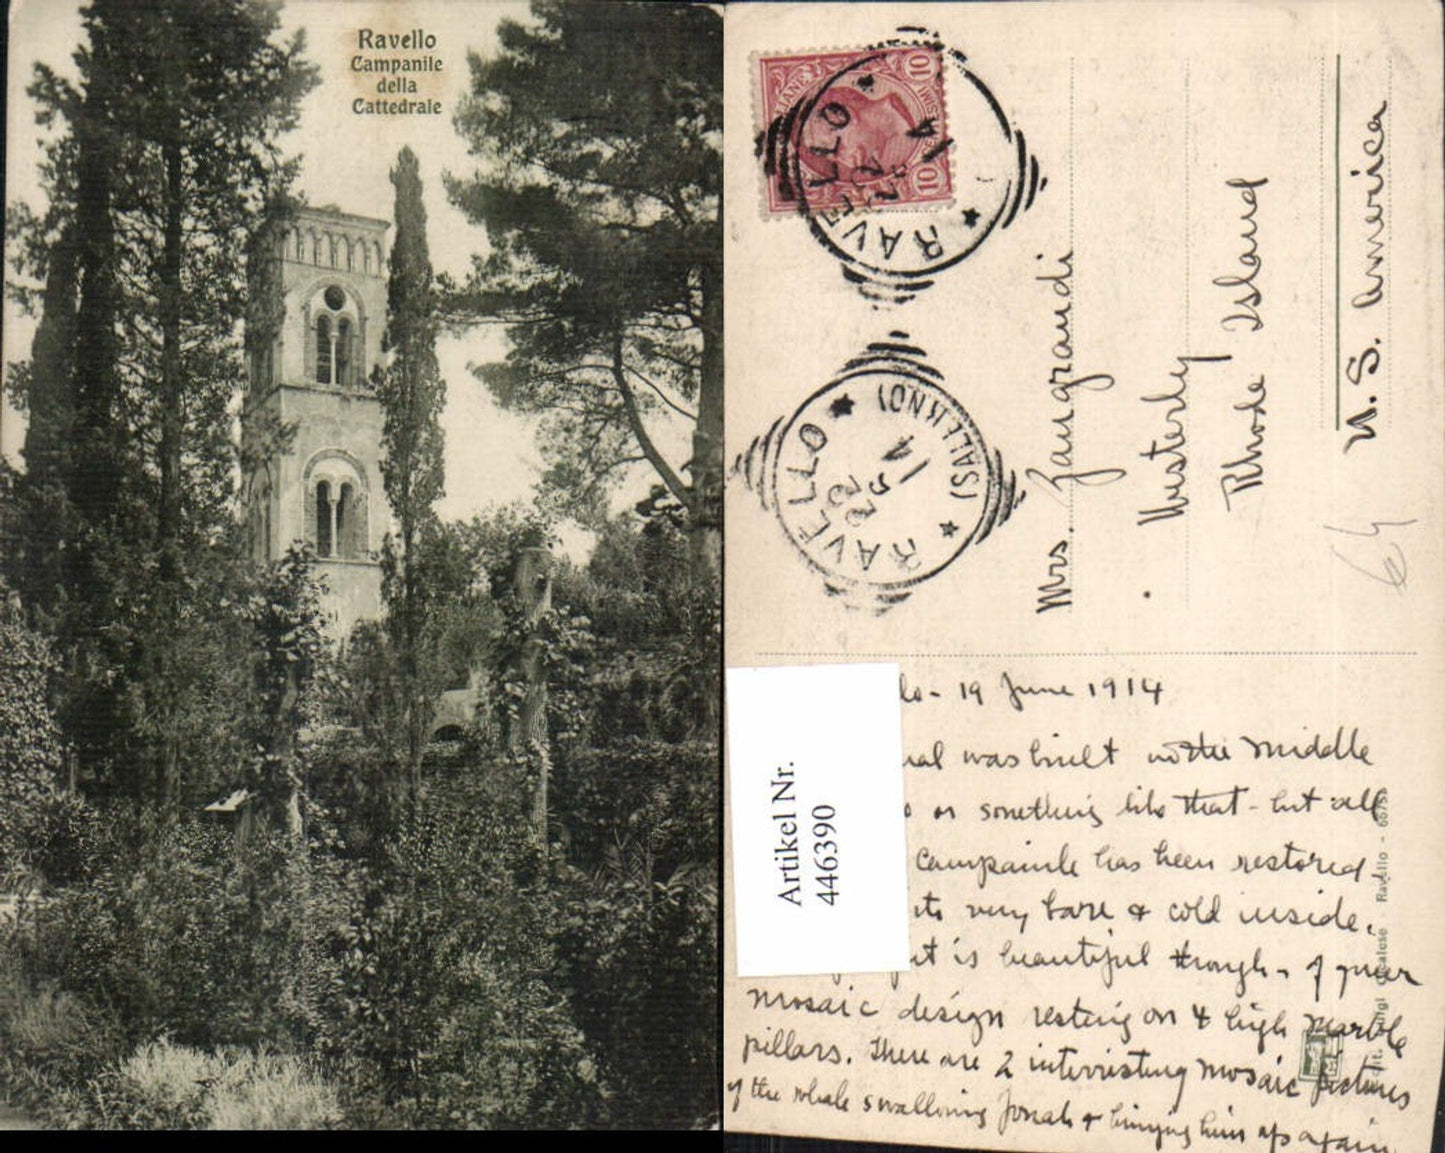 Ravello
Campanile
della
Cattedrale
10
10
RAVELLO
14
RAVELLO
(SALERNO)
22
5
14
Mrs. Zangrandi
Westerly
Rhode Island
U. S. America
64
Artikel Nr.
446390
lo - 19 June 1914
was built in the Middle
or something like that - but all
campanile has been restored
its very bare & cold inside.
is beautiful though - of
mosaic design resting on 4 high marble
pillars. There are 2 interesting mosaic pictures
of the whale swallowing Jonah & bringing him up again
Ravello